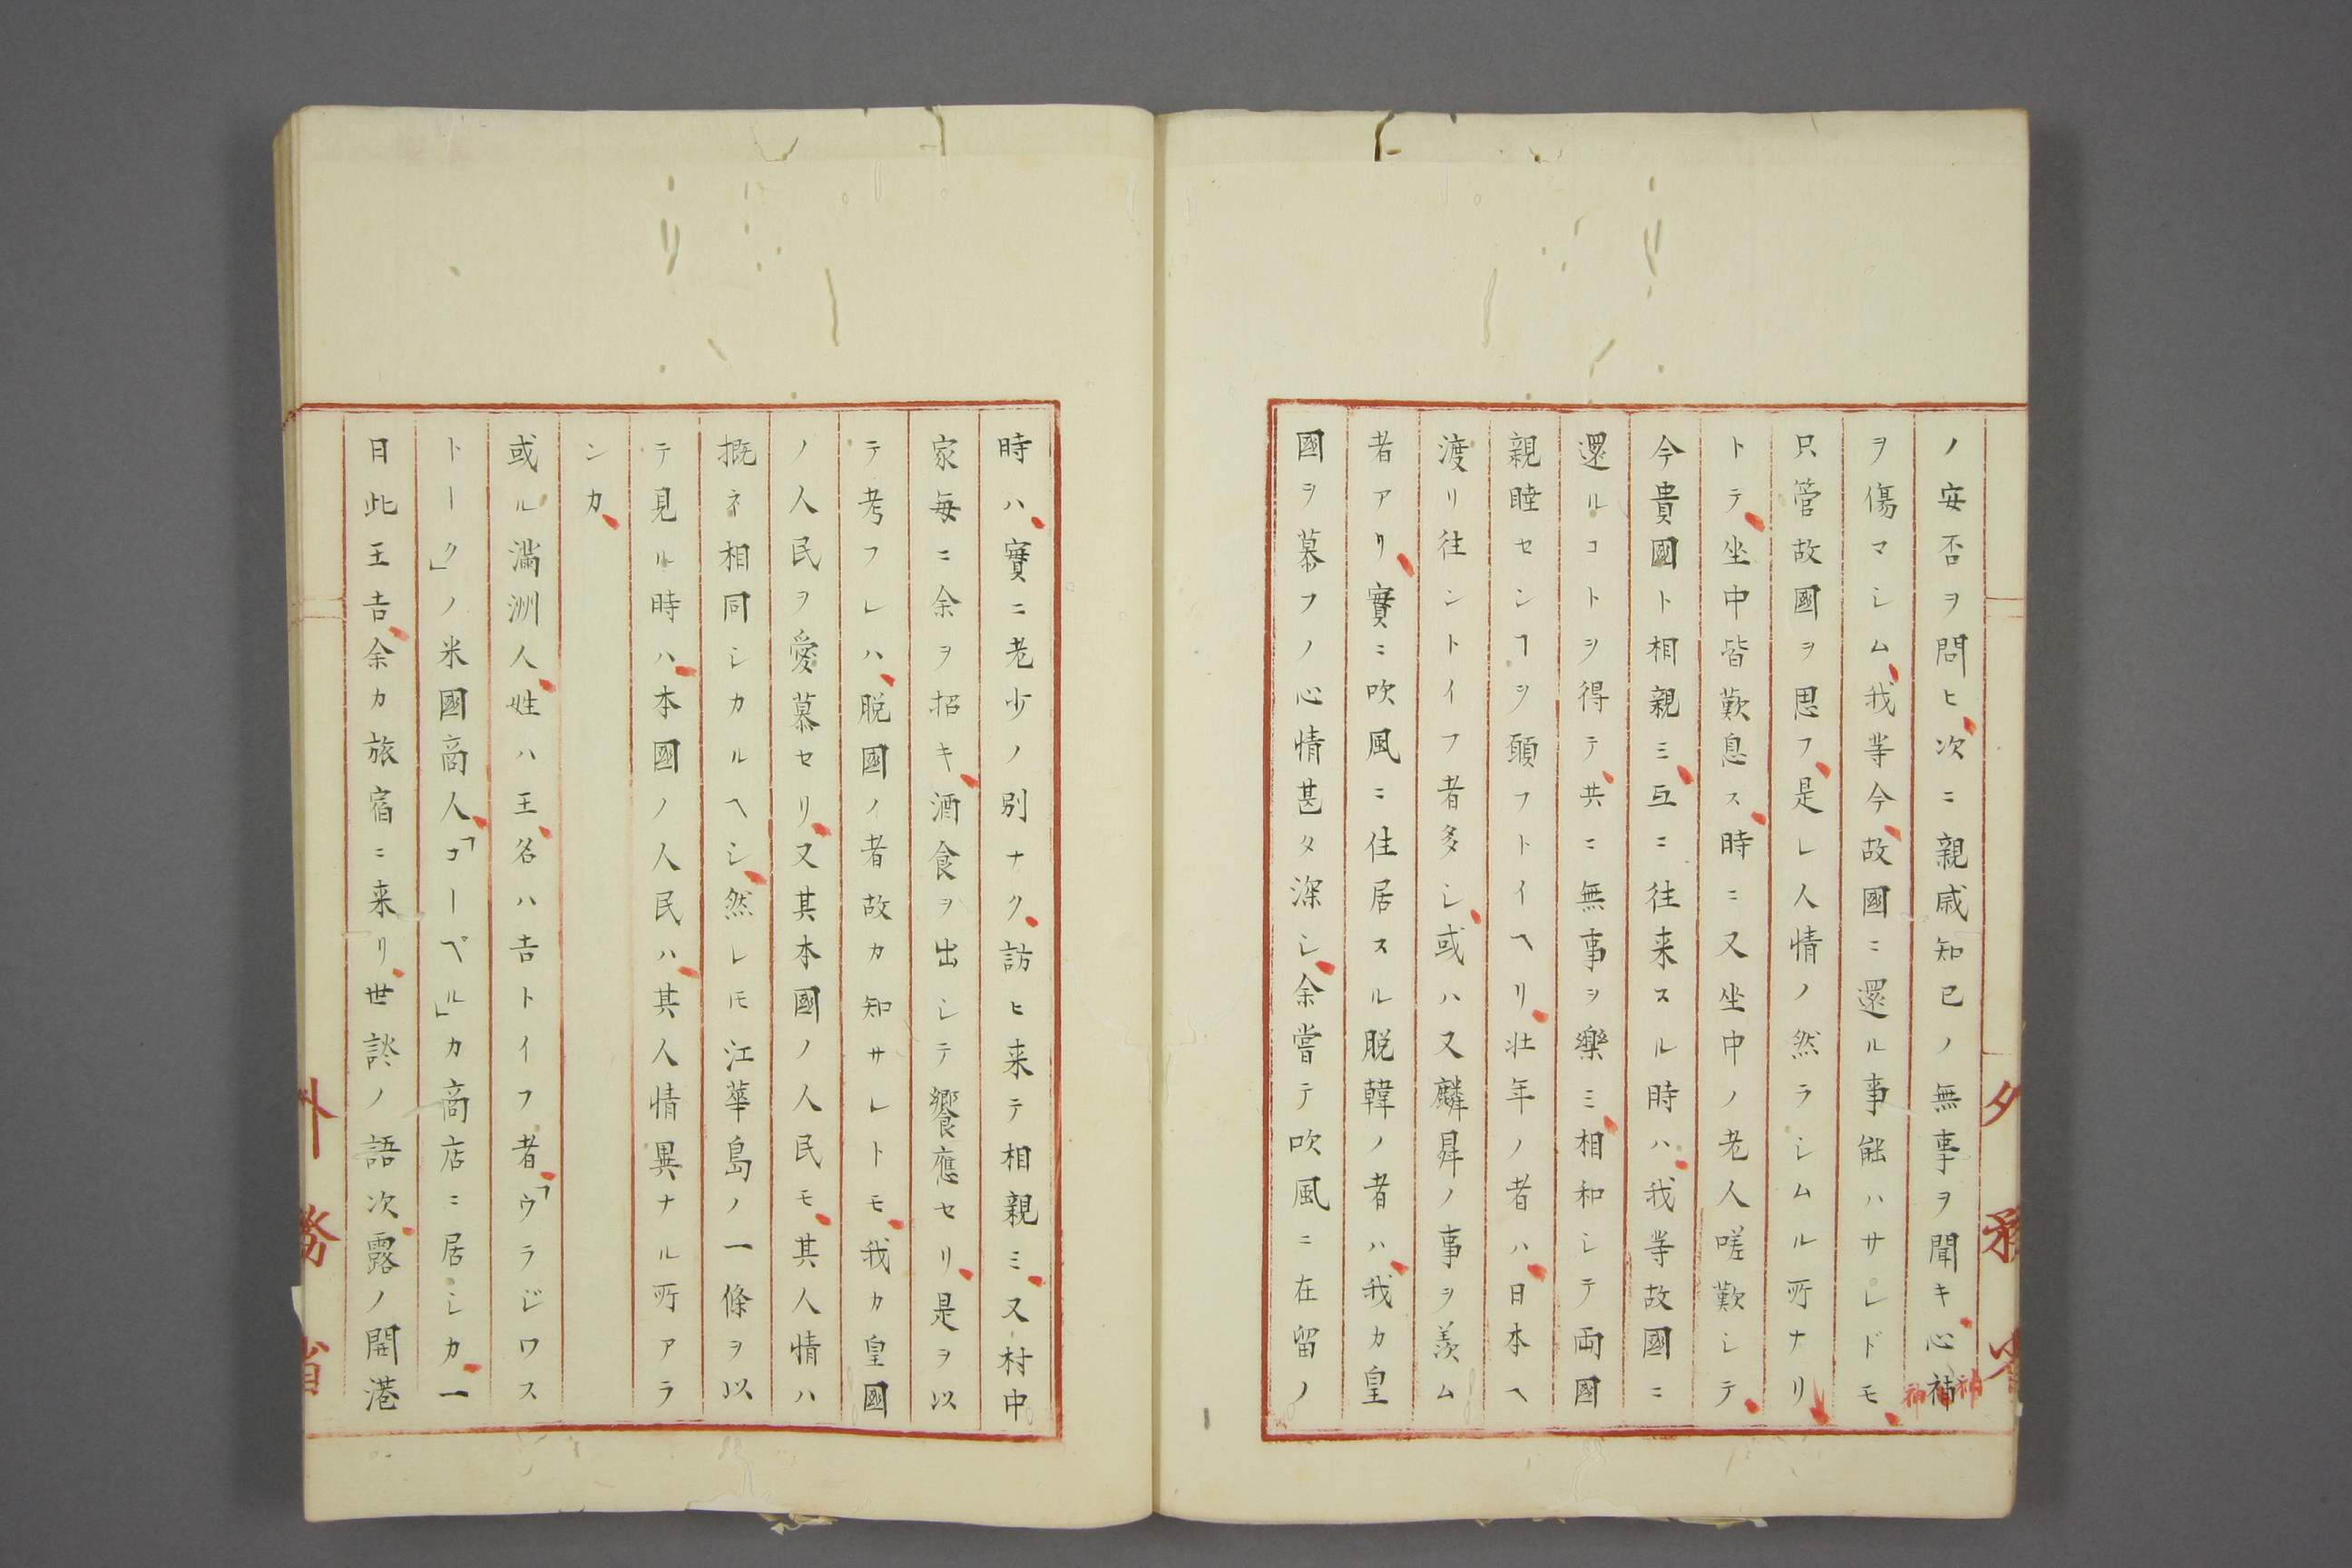 ノ安否ヲ問ヒ、次ニ親戚知己ノ無事ヲ聞キ、心神
ヲ傷マシム、我等今、故國ニ還ル事能ハサレドモ、
只管故國ヲ思フ、是レ人情ノ然ラシムル所ナリ
トテ、坐中皆歎息ス、時ニ又坐中ノ老人嗟歎シテ、
今貴國ト相親ミ、互ニ往来スル時ハ、我等故國ニ
還ルコトヲ得テ、共ニ無事ヲ樂ミ、相和シテ両國
親睦センヿヲ願フトイヘリ、壮年ノ者ハ、日本ヘ
渡リ往ントイフ者多シ、或ハ又麟昇ノ事ヲ羨ム
者アリ、實ニ吹風ニ住居スル脱韓ノ者ハ、我カ皇
國ヲ慕フノ心情甚タ深シ、余嘗テ吹風ニ在留ノ
外務省
時ハ、實ニ老少ノ別ナク、訪ヒ来テ相親ミ、又村中
家毎ニ余ヲ招キ、酒食ヲ出シテ饗應セリ、是ヲ以
テ考フレハ、脱國ノ者故カ知サレトモ、我カ皇國
ノ人民ヲ愛慕セリ、又其本國ノ人民モ、其人情ハ
概ネ相同シカルヘシ、然レ𪜈江華島ノ一條ヲ以
テ見ル時ハ、本國ノ人民ハ、其人情異ナル所アラ
ンカ、
或ル満洲人、姓ハ王、名ハ吉トイフ者、「ウラジワス
トーク」ノ米國商人、「コーペル」カ商店ニ居シカ、一
日此王吉、余カ旅宿ニ来リ、世談ノ語次、露ノ開港
外務省